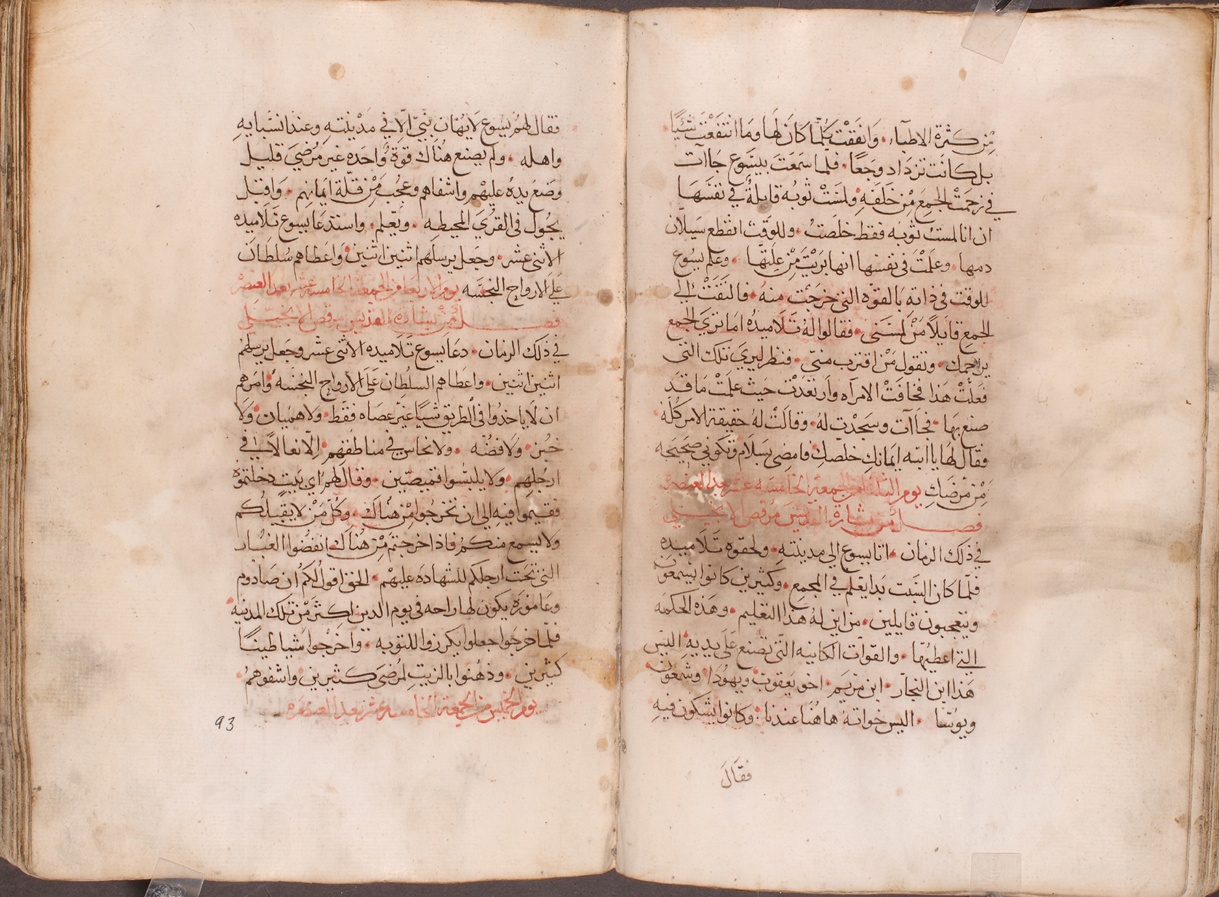 من كثرة الاطباء وانفقت كلما كان لها وما انتفعت شيًا
بل كانت تزداد وجعًا فلما سمعت بيسوع جاات
في زحمت الجمع من خلفه ولمست ثوبه قايلة في نفسها
ان انا لمست ثوبه فقط خلصت وللوقت انقطع سيلان
دمها وعلمت في نفسها انها بريت من علتها وعلم يسوع
للوقت في ذاته بالقوه التي خرجت منه فالتفت الى
الجمع قايلاً من لمسني فقالوا له تلاميده اما تري الجمع
يزحمك وتقول من اقترب مني فنظر ليري تلك التي
فعلت هذا فخافت الامراه وارتعدت حيث علمت ما قد
صنع بها فجاات وسجدت له وقالت له حقيقة الامر كله
فقال لها يا ابنه ايمانك خلصك فامضي بسلام وتكوني صحيحه
من مرضك يوم الثلثا من الجمعة الخامسه عشر بعد العنصره
فصل من بشارة القديس مرقص الانجيلي
في ذلك الزمان اتا يسوع الي مدينته ولحقوه تلاميده
فلما كان السبت بدا يعلم في المجمع وكثيرين كانوا يسمعون
ويتعجبون قايلين من اين له هذا التعليم وهذه الحكمه
التي اعطيها والقوات الكاينه التي تصنع علي يديه اليس
هذا ابن النجار ابن مريم اخو يعقوب ويهودا وشمعون
ويوسا اليس خواته هاهنا عندنا وكانوا يشكون فيه
فقال
فقال لهم يسوع لا يهان نبي الا في مدينته وعند انسبايه
واهله ولم يصنع هناك قوة واحده غير مرضي قليل
وضع يده عليهم واشفاهم وعجب من قلة ايمانهم واقبل
يجول في القري المحيطه ويعلم واستدعا يسوع تلاميده
الاثني عشر وجعل يرسلهم اثنين اثنين واعطاهم سلطان
علي الارواح النجسه يوم الاربعا من الجمعة الخامسة عشر بعد العنصره
فصل من بشارة القديس مرقص الانجيلي
في ذلك الزمان دعا يسوع تلاميده الاثني عشر وجعل يرسلهم
اثنين اثنين واعطاهم السلطان علي الارواح النجسه وامرهم
ان لا ياخدوا في الطريق شيًا غير عصاه فقط ولا هميان ولا
خبز ولا فضه ولا نحاس في مناطقهم الا نعالاً في
ارجلهم ولا يلبسوا قميصين وقال لهم اي بيت دخلتموه
فقيموا فيه الي ان تخرجوا من هناك وكل من لا يقبلكم
ولا يسمع منكم فاذا خرجتم من هناك انفضوا الغبار
التي تحت ارجلكم للشهاده عليهم الحق اقول لكم ان صادوم
وعاموره يكون لها راحه في يوم الدين اكثر من تلك المدينه
فلما خرجوا جعلوا يكرزوا للتوبه واخرجوا شياطينًا
كثيرين ودهنوا بالزيت لمرضي كثيرين واشفوهم
يوم الخميس من الجمعة الخامسه عشر بعد العنصره
93